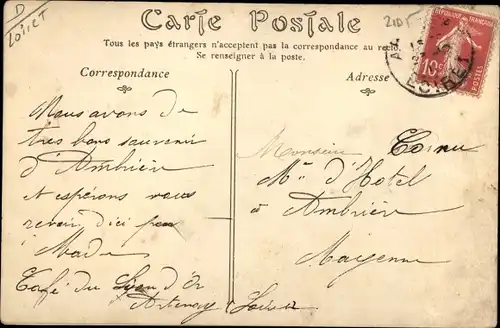 D
Loiret
Carte Postale
Tous les pays étrangers n'acceptent pas la correspondance au recto
Se renseigner à la poste.
Correspondance
Adresse
210F
RÉPUBLIQUE FRANÇAISE
10c
POSTES
LOIRET
Nous avons de
très bons souvenir
d'Ambrière
et espérons vous
revoir d'ici peu
Made
Café du Lyon d'Or
Artenay Loiret
Monsieur
Mtre d'Hotel
à Ambrière
Mayenne